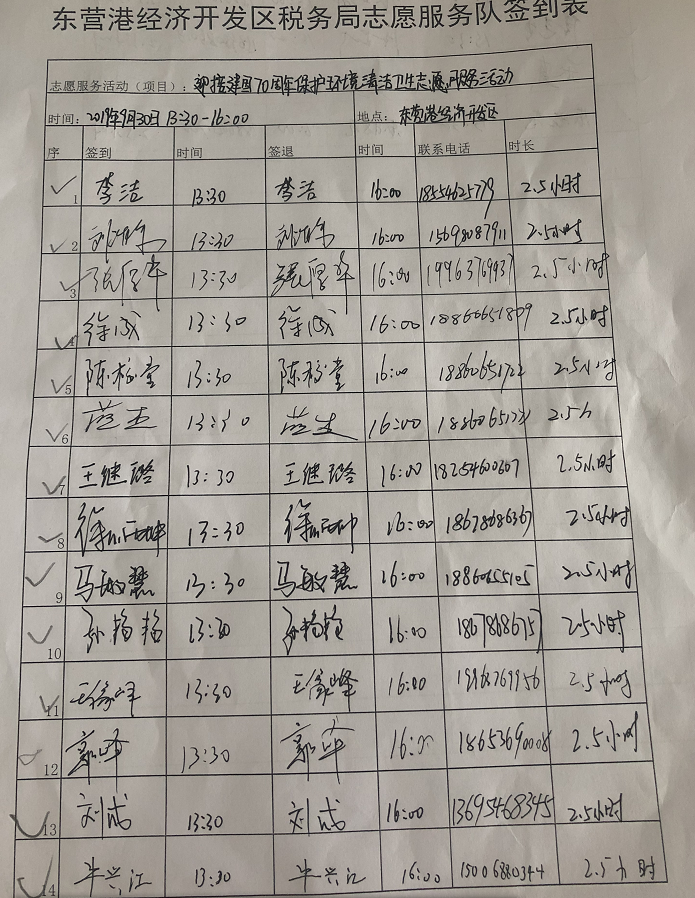 东营港经济开发区税务局志愿服务队签到表
志愿服务活动（项目）：迎接建国70周年保护环境清洁卫生志愿服务活动
时间：2019年9月30日 13:30-16:00 地点：东营港经济开发区
序 签到 时间 签退 时间 联系电话 时长
1 李洁 13:30 李洁 16:00 18554625779 2.5小时
2 13:30 16:00 15698087911 2.5小时
3 张厚华 13:30 张厚华 16:00 2.5小时
4 徐成 13:30 徐成 16:00 18860651809 2.5小时
5 陈校堂 13:30 陈校堂 16:00 2.5小时
6 13:30 16:00 2.5h
7 王继璐 13:30 王继璐 16:00 18254600607 2.5小时
8 徐 13:30 徐 16:00 18678686367 2.5小时
9 马敏慧 13:30 马敏慧 16:00 18860655105 2.5小时
10 孙艳艳 13:30 孙艳艳 16:00 2.5小时
11 王 峰 13:30 王 峰 16:00 2.5小时
12 郭峰 13:30 郭 16:00 18653690008 2.5小时
13 刘成 13:30 刘成 16:00 13695468345 2.5小时
14 牛兴江 13:30 牛兴江 16:00 15006880344 2.5小时